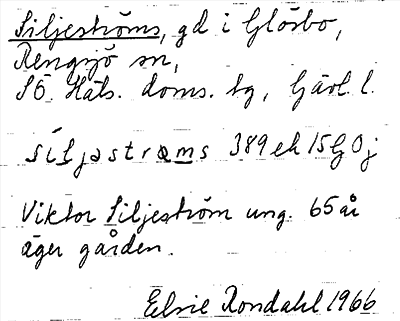 Siljeströms, gd i Glösbo,
Rengsjö sn,
SÖ. Häls. doms. tg, Gävl. l.
siljastrøms 389 ek 15G0j
Viktor Siljeström ung. 65 år
äger gården.
Elsie Rondahl 1966